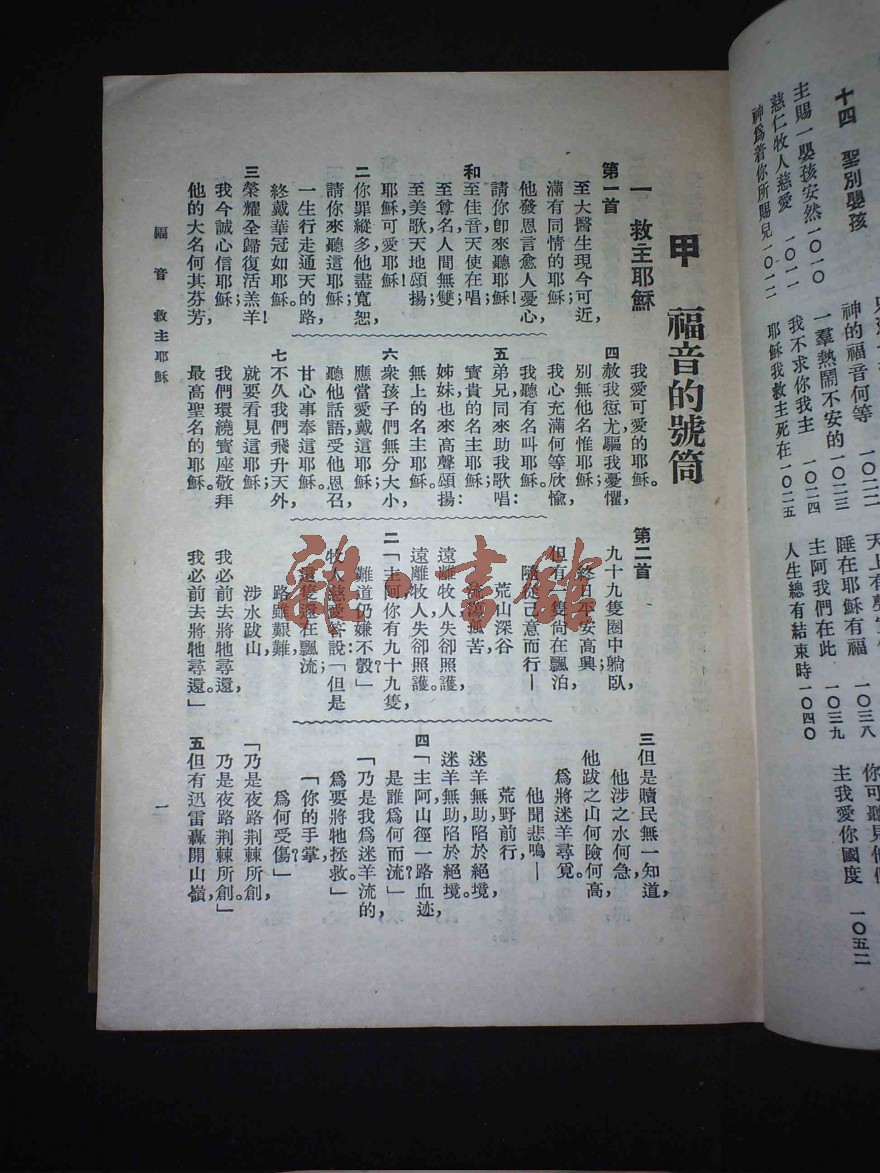 十四 聖別嬰孩
主賜一嬰孩安然 一〇一〇
慈仁牧人慈愛 一〇一一
神爲着你所賜兒 一〇一二
神的福音何等 一〇二二
一羣熱鬧不安的 一〇二三
我不求你我主 一〇二四
耶穌我救主死在 一〇二五
天上有
睡在耶穌有福 一〇三八
主阿我們在此 一〇三九
人生總有結束時 一〇四〇
你可聽見他
主我愛你國度 一〇五二
甲 福音的號筒
一 救主耶穌
第一首
至大醫生現今可近,
滿有同情的耶穌;
他發恩言愈人憂心,
請你卽來聽耶穌!
和 至佳音天使在唱;
至尊名人間無雙;
至美歌天地頌揚;
耶穌,可愛耶穌!
二 你罪縱多他盡寬恕,
請你來聽這耶穌;
一生行走通天的路,
終戴華冠如耶穌。
三 榮耀全歸復活羔羊!
我今誠心信耶穌;
他的大名何其芬芳,
我愛可愛的耶穌。
四 赦我愆尤驅我憂懼,
別無他名惟耶穌;
我心充滿何等欣愉,
我聽有名叫耶穌。
五 弟兄同來助我歌唱:
寶貴的名主耶穌;
姊妹也來高聲頌揚:
無上的名主耶穌。
六 衆孩子們無分大小
應當愛戴這耶穌;
聽他話語,受他恩召,
甘心事奉這耶穌。
七 不久我們飛升天外,
就要看見這耶穌;
我們環繞寶座敬拜
最高聖名的耶穌。
第二首
九十九隻圈中躺臥,
終日平安高興;
但有一隻尚在飄泊,
隨從己意而行—
荒山深谷
流蕩孤苦,
遠離牧人失卻照護,
遠離牧人失卻照護。
二 「主阿你有九十九隻,
難道仍嫌不彀?」
牧人慈愛答說:「但是
這隻還在飄流;
路雖艱難,
涉水跋山
我必前去將牠尋還,
我必前去將牠尋還。」
三 但是贖民無一知道,
他涉之水何急,
他跋之山何險何高,
爲將迷羊尋覓。
他聞悲鳴—
荒野前行,
迷羊無助陷於絕境,
迷羊無助陷於絕境。
四 「主阿山徑一路血迹,
是誰爲何而流?」
「乃是我爲迷羊流的,
爲要將牠拯救。」
「你的手掌,
爲何受傷?」
「乃是夜路荆棘所創,
乃是夜路荆棘所創。」
五 但有迅雷轟開山嶺,
福音 救主耶穌
一
雜·書館